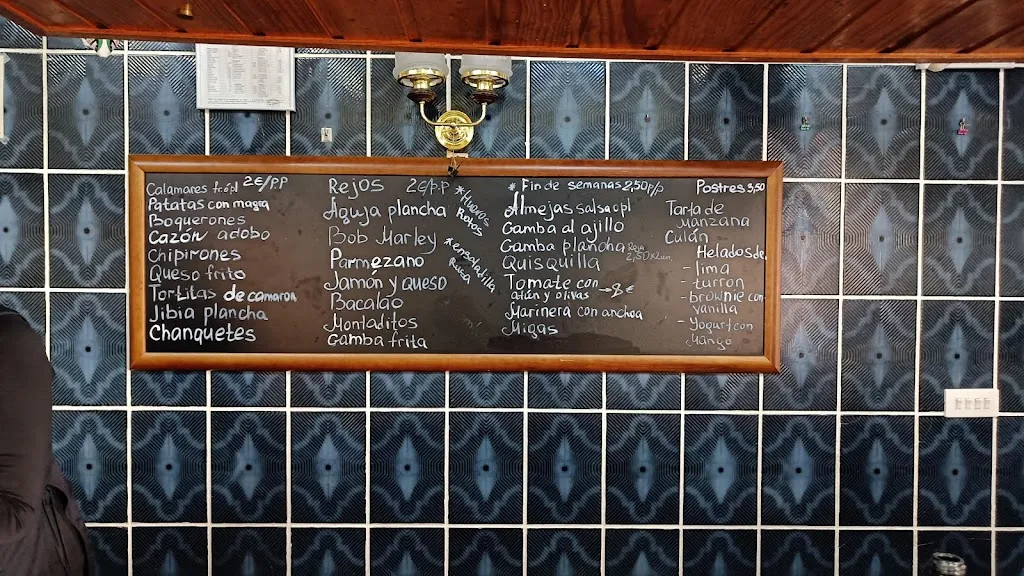 Calamares 2€/P.P
Patatas con magra
Boquerones
Cazón adobo
Chipirones
Queso frito
Tortitas de camaron
Jibia plancha
Chanquetes
Rejos 2€/P.P
Aguja plancha
Bob Marley
Parmezano
Jamón y queso
Bacalao
Montaditos
Gamba frita
* Huevos
Rotos
* ensaladilla
Rusa
* Fin de semanas 2,50 p/p
Almejas salsa
Gamba al ajillo
Gamba plancha
Quisquilla
Tomate con
atún y olivas → 8 €
Marinera con anchoa
Migas
Postres 3,50
Tarta de
manzana
Culán
Helados de
- lima
- turron
- brownie con
vanilla
- Yogurt con
Mango